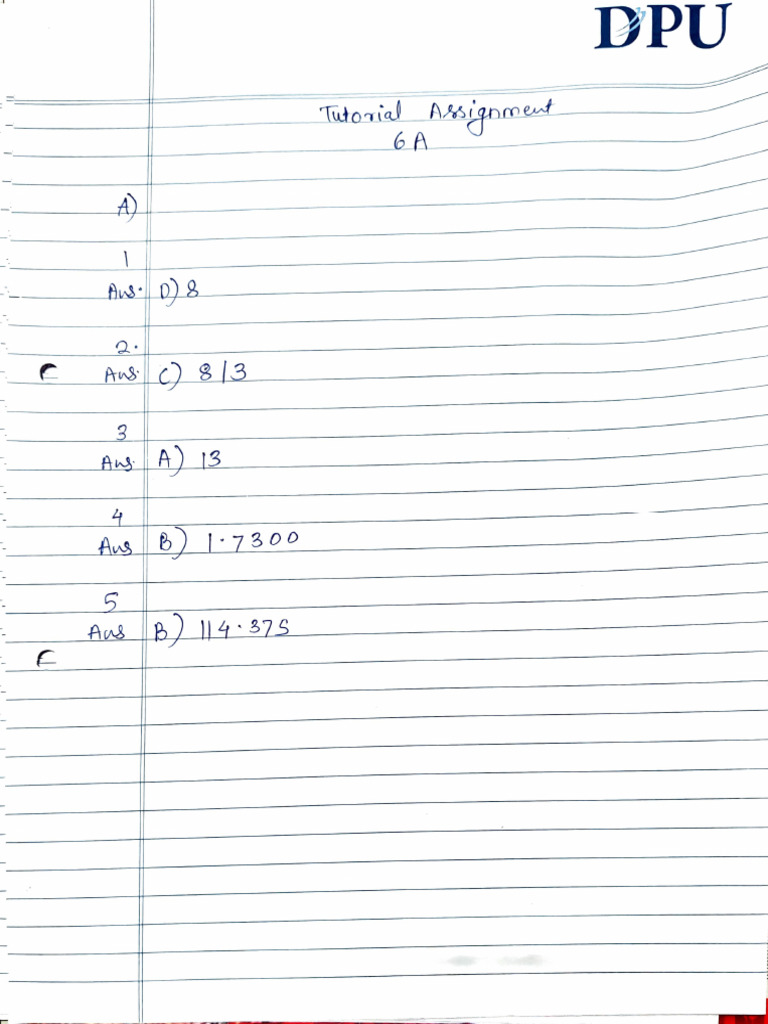 DPU
Tutorial Assignment
6A
A)
1
Ans. D) 8
2.
Ans. C) 8/3
3
Ans. A) 13
4
Ans B) 1.7300
5
Ans B) 114.375